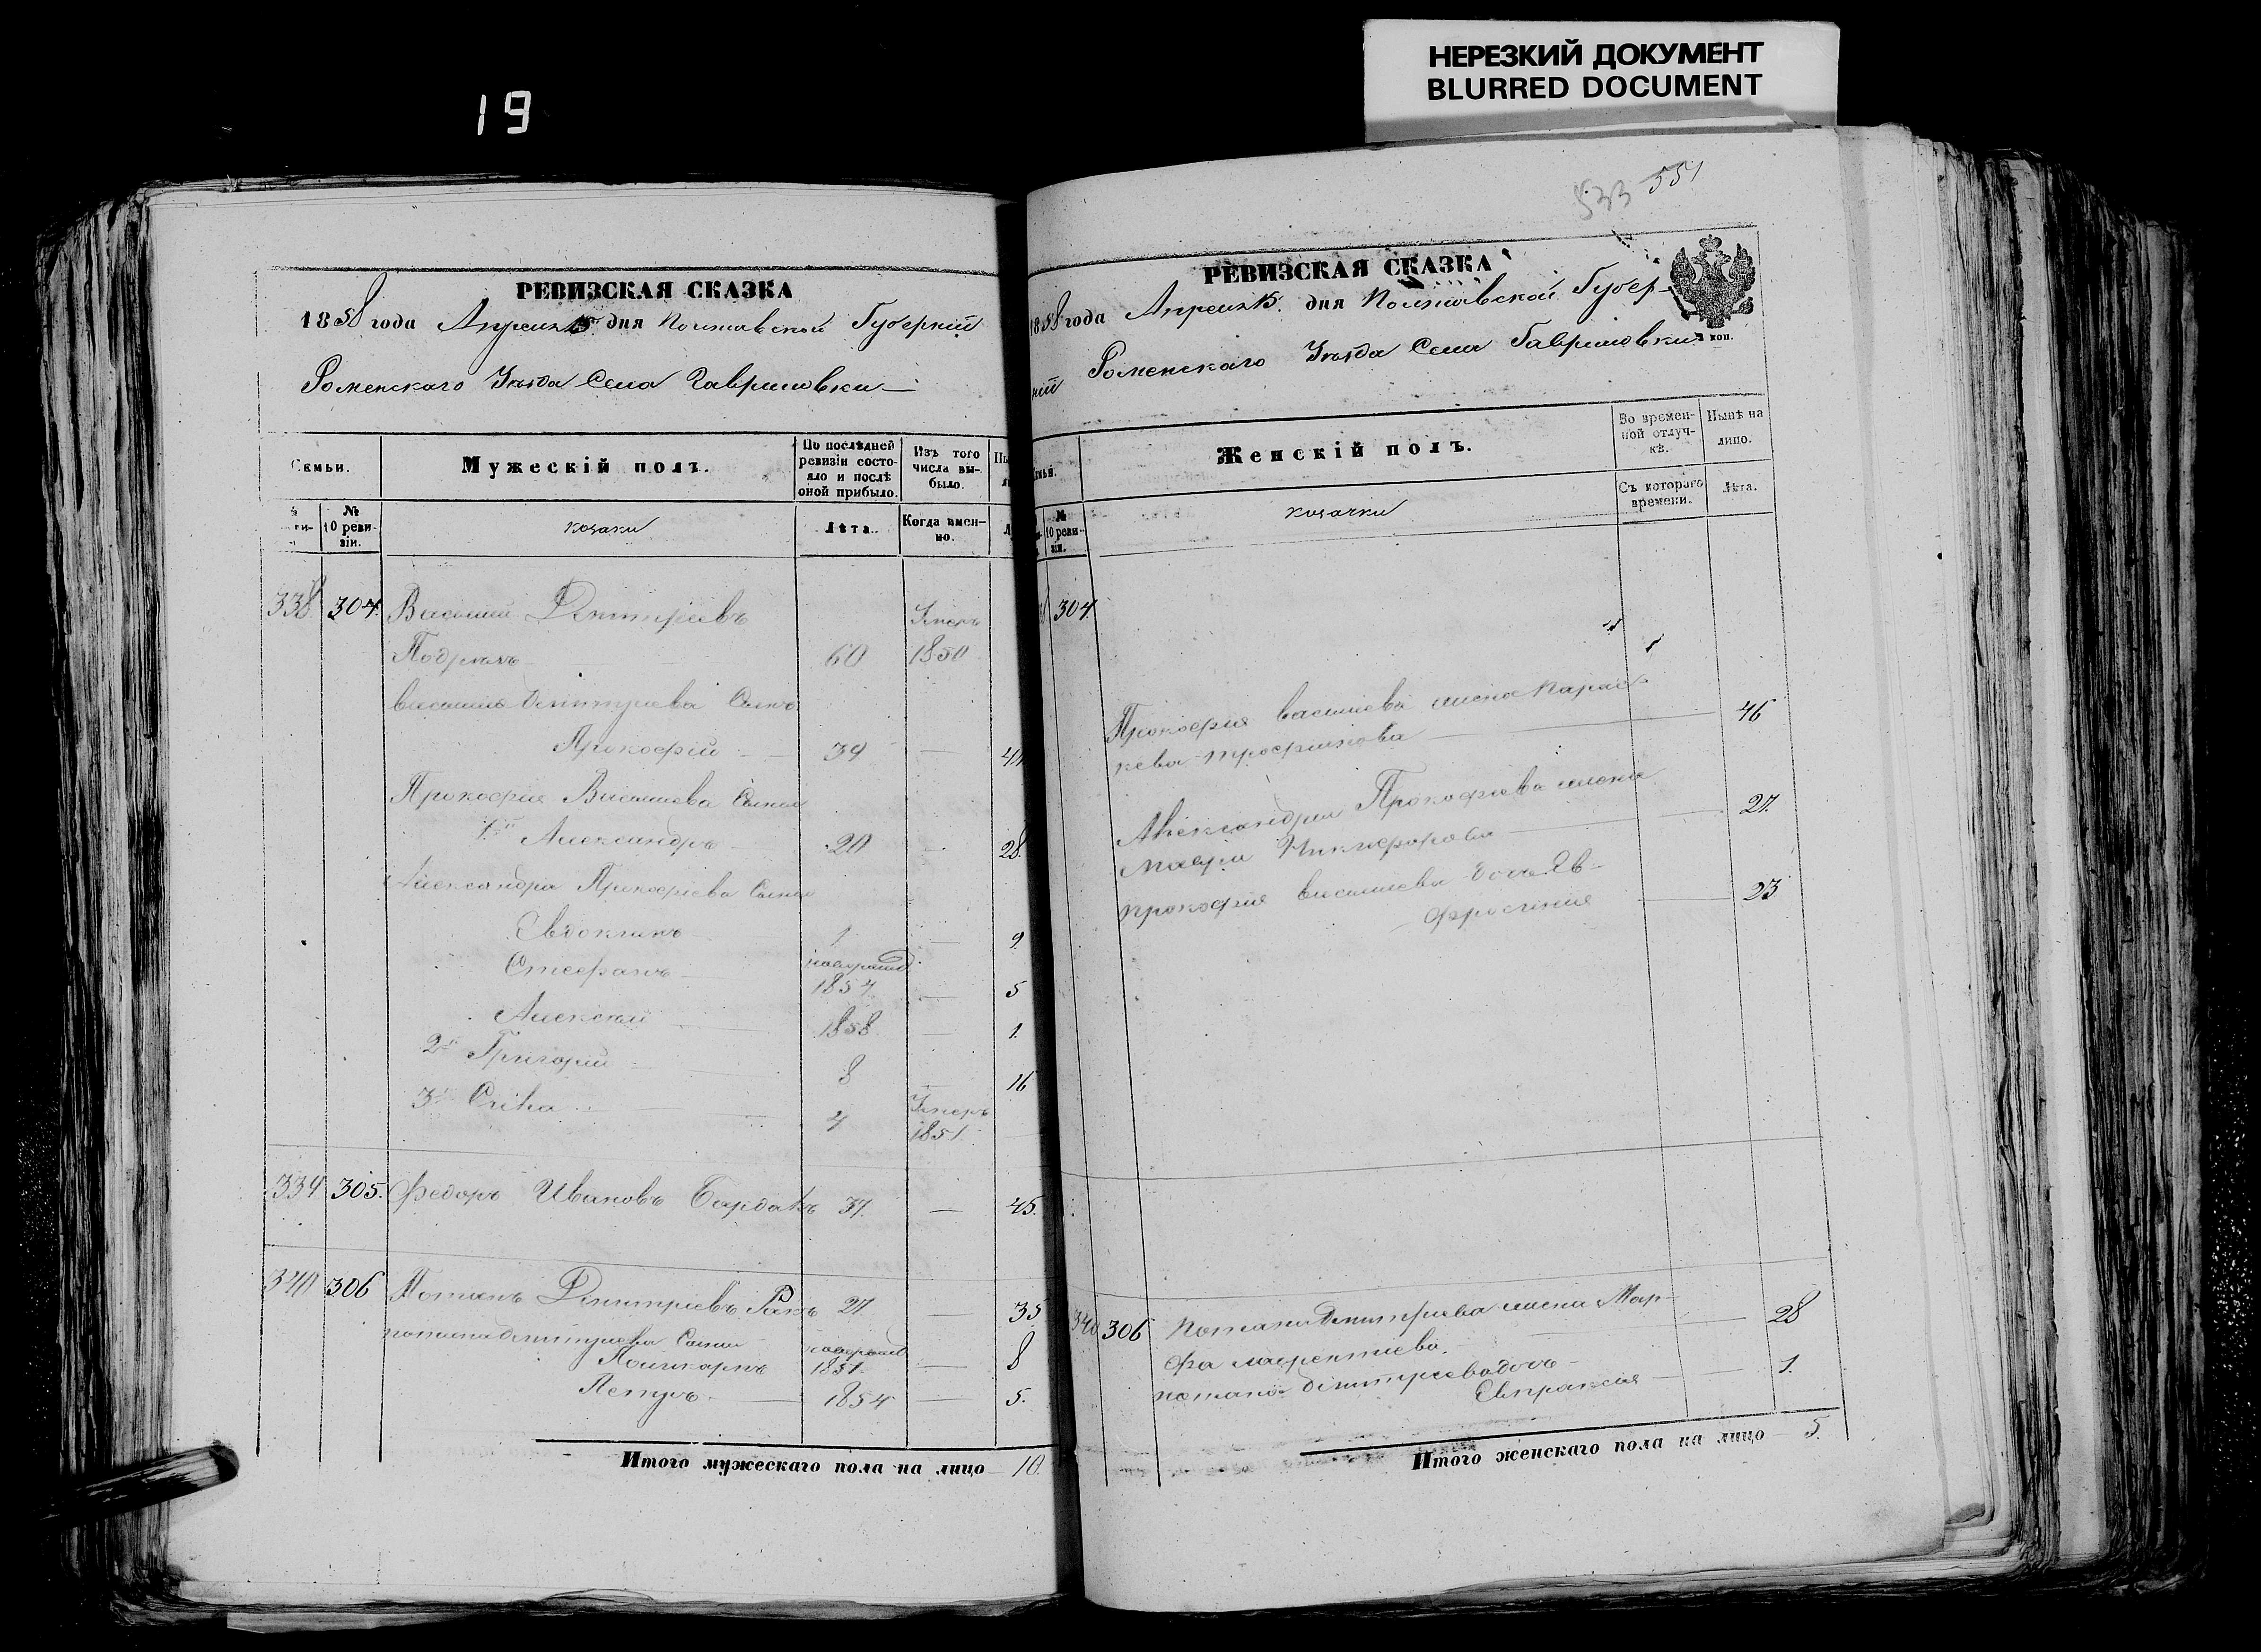 НЕРЕЗКИЙ ДОКУМЕНТ
BLURRED DOCUMENT
19
РЕВИЗСКАЯ СКАЗКА
1858 года Апреля 15 дня Полтавской Губерній
Роменскаго Уѣзда Села Гавриловки
Семьи.
Мужескій полъ.
По послѣдней ревизіи состояло и послѣ оной прибыло.
Изъ того числа выбыло.
№ 10 ревизіи.
козаки
Лѣта.
Когда именно.
338 304. Василий Дмитріевъ Умеръ
60 1850
Василия Дмитриева Сынъ
Прокофій 39
Прокофия Василиева Сыны
1й Александръ 20 28.
Александра Прокофіева Сыны
Евдокимъ 1 9.
Стефанъ
1854 5
Алексѣй 1858 1.
2й Григорій 8 16
3й Сава 4 Умеръ
1851
339 305. Федоръ Ивановъ Бардакъ 37. 45.
340 306 Потапъ Дмитріевъ Ракъ 27 35
Потапа Дмитриева Сыны
Поликарпъ 1851 8
Петръ 1854 5.
Итого мужескаго пола на лицо 10.
533 551
РЕВИЗСКАЯ СКАЗКА
1858 года Апреля 15. дня Полтавской Губер-
ній Роменскаго Уѣзда Села Гавриловки
коп.
Женскій полъ.
Во временной отлучкѣ.
Нынѣ на лицо.
№ 10 ревизіи.
козачки
Съ котораго времени.
Лѣта.
304.
Прокофия Василиева жена Парас-
кева Трофимова 46
Александра Прокофиева жена
Мавра Никифорова 27.
Прокофия Василиева дочь Ев-
фросиния 23
340 306 Потапа Дмитриева жена Мар-
фа Лаврентиева 28
Потапа Дмитриева дочь
Евпраксия 1.
Итого женскаго пола на лицо 5.